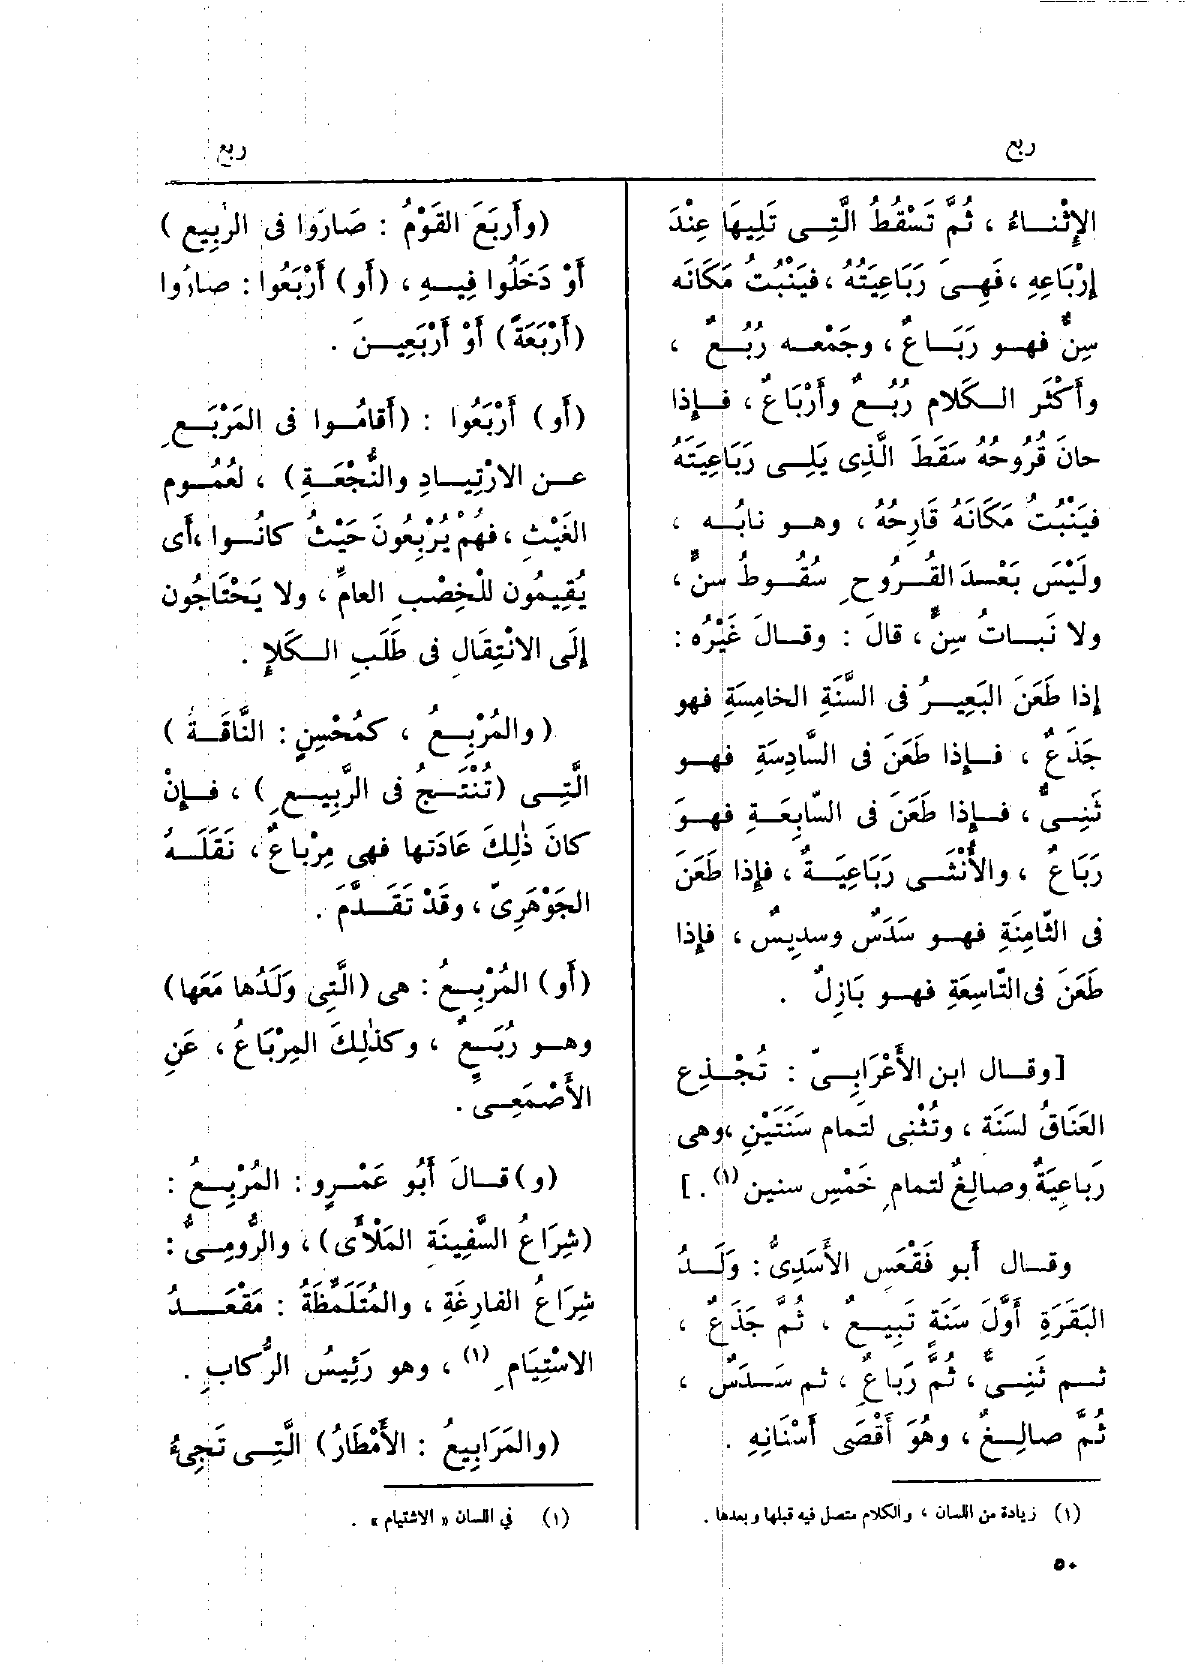 ربع
ربع
الإِثْنــاءُ ، ثُمَّ تَسْقُطُ الَّتِــى تَلِيهَا عِنْدَ
إِرْبَاعِهِ ، فَهِــىَ رَبَاعِيَتُهُ ، فيَنْبُتُ مَكَانَه
سِنٌّ فهــو رَبَــاعٌ ، وجَمْعــه رُبُــعٌ ،
وأَكْثَر الــكَلام رُبُــعٌ وأَرْبَاعٌ ، فــإِذا
حانَ قُرُوحُهُ سَقَطَ الَّذِى يَلِــى رَبَاعِيَتَهُ
فيَنْبُتُ مَكَانَهُ قَارِحُهُ ، وهــو نابُــه ،
ولَيْسَ بَعْــدَ القُــرُوحِ سُقُــوطُ سِنٍّ ،
ولا نَبــاتُ سِنٍّ ، قالَ : وقــالَ غَيْرُه :
إِذا طَعَنَ البَعِيــرُ فى السَّنَةِ الخامِسَةِ فهو
جَذَعٌ ، فــإِذا طَعَنَ فى السَّادِسَةِ فهــو
ثَنِــىٌّ ، فــإِذا طَعَنَ فى السّابِعَــةِ فهــوَ
رَبَاعٌ ، والأُنْثَــى رَبَاعِيَــةٌ ، فإِذا طَعَنَ
فى الثَّامِنَةِ فهــو سَدَسٌ وسدِيسٌ ، فإِذا
طَعَنَ فى التَّاسِعَةِ فهــو بَازِلٌ .
[وقــال ابن الأَعْرَابِــىّ : تُجْــذِع
العَنَاقُ لسَنَة ، وتُثْنِى لتمام سَنَتَيْنِ ،وهى
رَبَاعِيَةٌ وصالِغٌ لتمامِ خَمْسِ سنين (١) . ]
وقــال أَبو فَقْعَسٍ الأَسَدِىُّ : وَلَــدُ
البَقَرَةِ أَوَّلَ سَنَةٍ تَبِيــعٌ ، ثُــمَّ جَذَعٌ ،
ثــم ثَنِــىٌّ ، ثُمَّ رَبَاعٌ ، ثم سَــدَسٌ ،
ثُمَّ صالِــغٌ ، وهُوَ أَقْصَى أَسْنَانِهِ .
(١) زيادة من اللسان ، والكلام متصل فيه قبلها وبعدها .
(وأَربَعَ القَوْمُ : صَارَوا فى الرَّبِيعِ )
أَوْ دَخَلُوا فِيــهِ ، (أَو) أَرْبَعُوا : صارُوا
(أَرْبَعَةً) أَوْ أَرْبَعِيــنَ .
(أَو) أَرْبَعُوا : (أَقامُــوا فى المَرْبَــعِ
عــن الارْتِيــادِ والنُّجْعَــةِ) ، لعُمُــوم
الغَيْثِ ، فهُمْ يُرْبِعُونَ حَيْثُ كانُــوا ،أَى
يُقِيمُون للْخِصْبِ العامِّ ، ولا يَحْتَاجُون
إِلَى الانْتِقَالِ فى طَلَبِ الــكَلإِ .
(والمُرْبِــعُ ، كمُحْسِنٍ : النَّاقَــةُ )
الَّتِــى (تُنْتَــجُ فى الرَّبِيــعِ ) ، فــإِنْ
كانَ ذٰلِكَ عَادَتها فهى مِرْباعٌ ، نَقَلَــهُ
الجَوْهَرِىّ ، وقَدْ تَقَــدَّمَ .
(أَو) المُرْبِــعُ : هى (الَّتِى وَلَدُها مَعَها)
وهــو رُبَــعٌ ، وكذٰلِكَ المِرْبَاعُ ، عَنِ
الأَصْمَعِــىِّ .
(و) قــالَ أَبُو عَمْــرٍو : المُرْبِــعُ :
(شِرَاعُ السَّفِينَةِ المَلْأَى) ، والرُّومِــىُّ :
شِرَاعُ الفارِغَةِ ، والمُتَلَمِّظَةُ : مَقْعَــدُ
الاسْتِيَامِ (١) ، وهو رَئِيسُ الرُّكابِ .
(والمَرَابِيعُ : الأَمْطَارُ) الَّتِــى تَجِىءُ
(١) فى اللسان « الاشتيام » .
٥٠